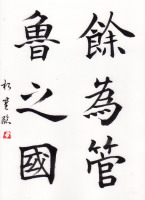 餘為管
魯之國